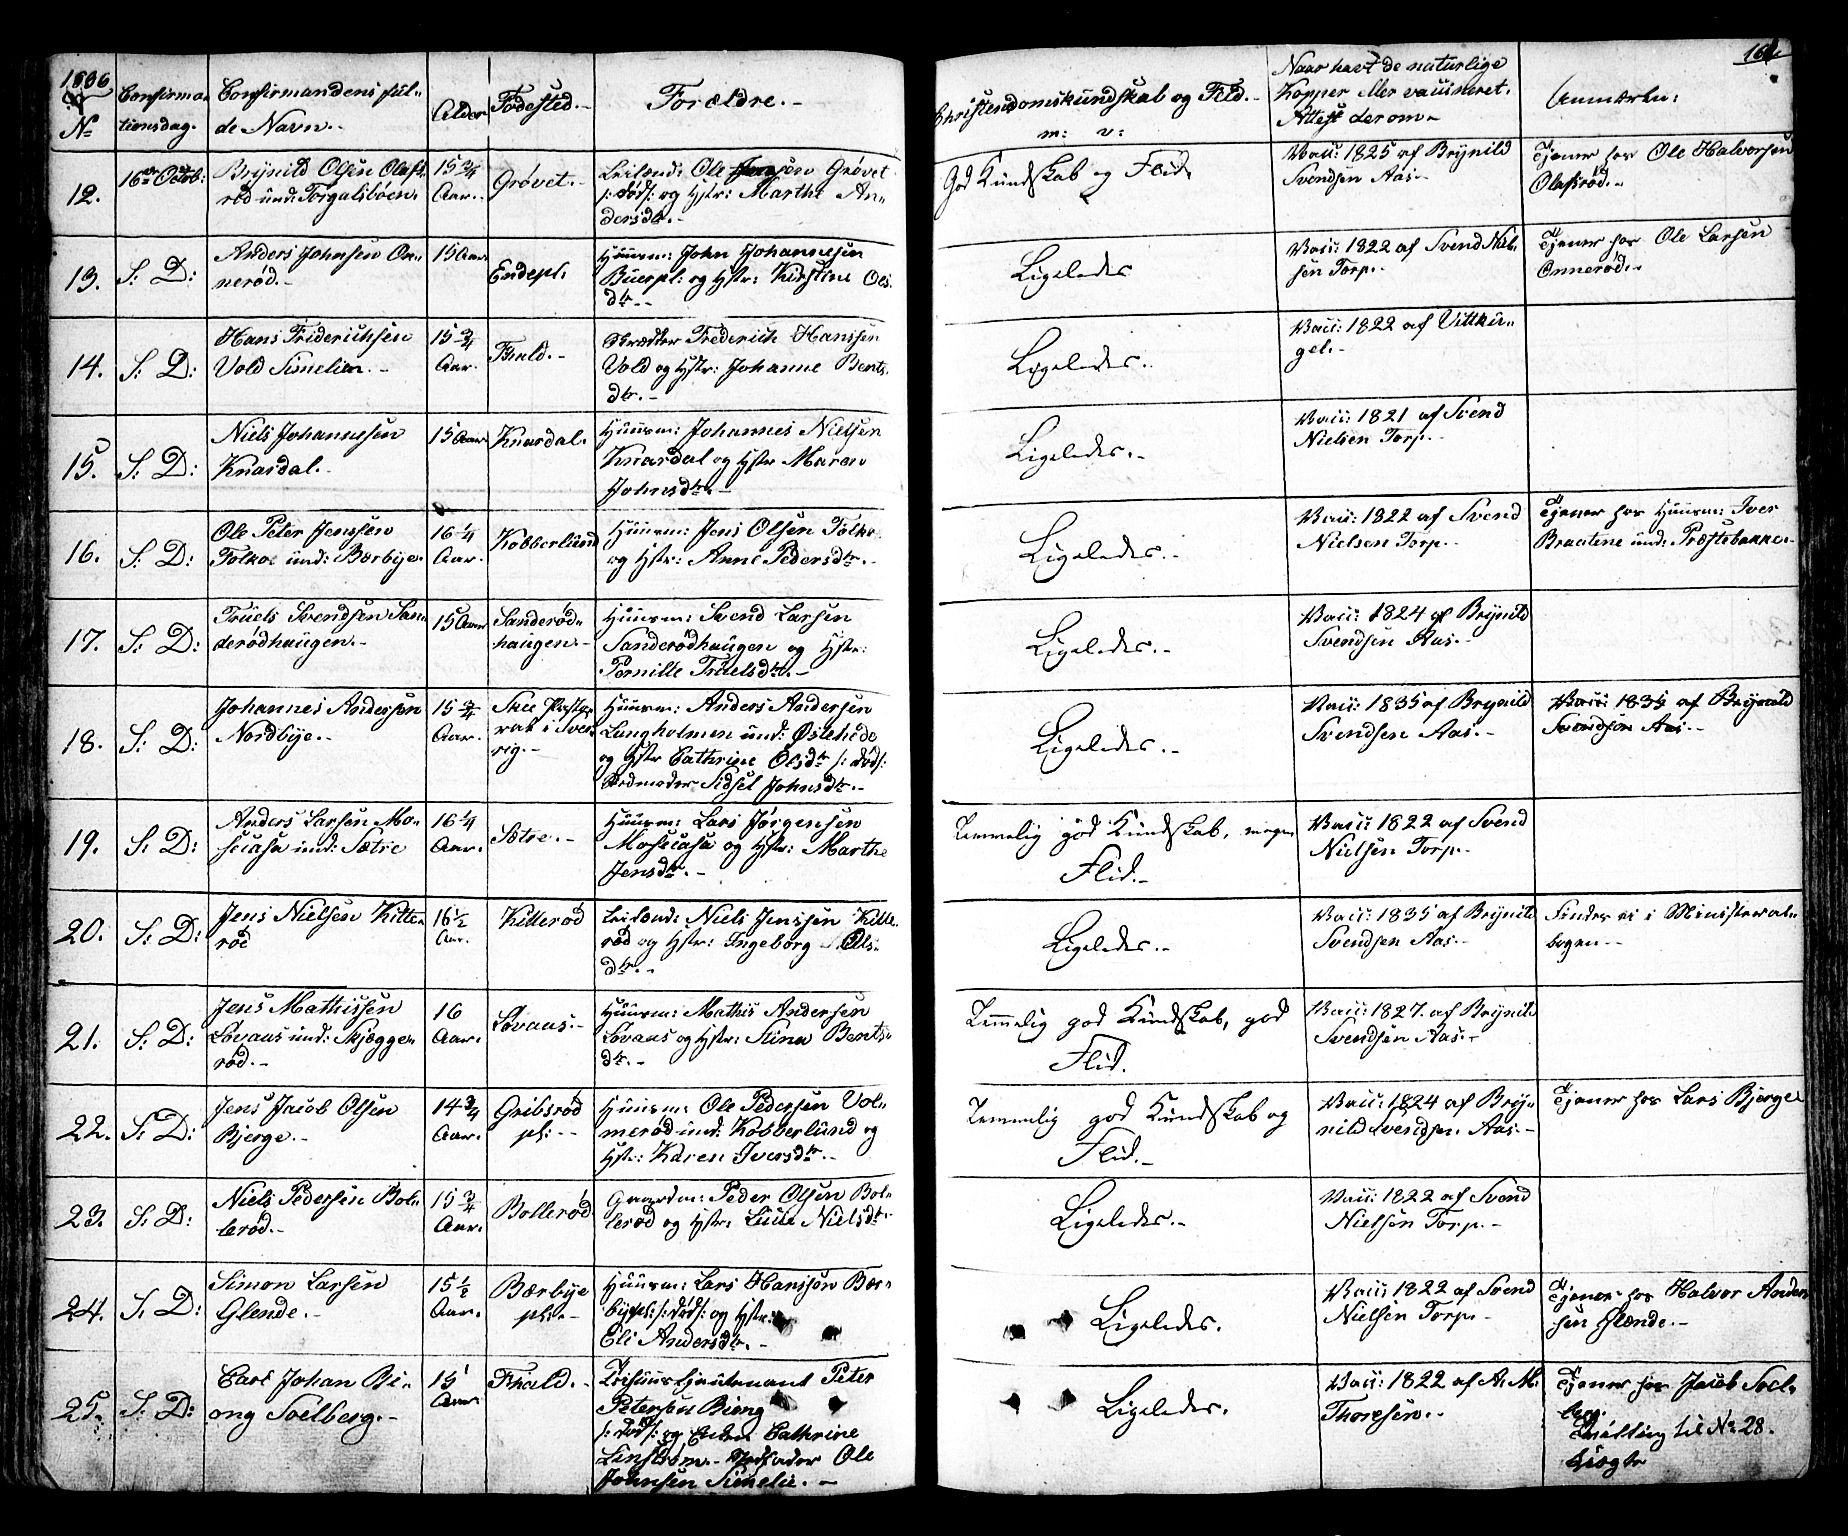 1836
No
Confirma-
tionsdag.
Confirmandens ful-
de Navn.
Alder
Födested.
Forældre.
Christendomskundskab og Flid.
m: v:
Naar havt de naturlige
Kopper eller vaccineret.
Attest derom
Anmærkn:
12.
16de Octob:
Brynild Olsen Olafs-
röd und: Torgalsböen.
15 3/4
Aar.
Grövet.
Leilænd: Ole Jensen Grövet
/: död :/ og Hstr: Marthe An-
dersdtr.
God Kundskab og Flid.
Vacc: 1825 af Brynild
Svendsen Aas.
Tjener hos Ole Halvorsen
Olafsröd.
13.
S: D:
Anders Johnsen On-
neröd.
15 Aar
Endepl:
Huusm: John Johannesen
Buerpl: og Hstr: Kirstine Ols-
dtr.
Ligeledes
Vacc: 1822 af Svend Niel-
sen Torp.
Tjener hos Ole Larsen
Onneröd.
14.
S: D:
Hans Friderichsen
Vold Simelien.
15 3/4
Aar.
Frhald.
Skrædder Frederich Hanssen
Vold og Hstr: Johanne Bents-
dtr.
Ligeledes.
Vacc: 1822 af Vittku-
gel.
15.
S: D:
Niels Johannesen
Knardal.
15 Aar
Knardal.
Huusm: Johannes Nielsen
Knardal og Hstr Maren
Johnsdtr.
Ligeledes.
Vacc: 1821 af Svend
Nielsen Torp.
16.
S: D:
Ole Peter Jenssen
Folkoe und: Bærbye.
16 1/4
Aar.
Kobberlund
Huusm: Jens Olsen Folkoe
og Hstr: Anne Pedersdtr.
Ligeledes.
Vacc: 1822 af Svend
Nielsen Torp.
Tjener hos Huusm: Iver
Braatene und: Præstebakke.
17.
S: D:
Truels Svendsen San-
derödhaugen.
15 Aar
Sanderöd-
haugen.
Huusm: Svend Larsen
Sanderödhaugen og Hstr:
Pernille Truelsdtr.
Ligeledes.
Vacc: 1824 af Brynild
Svendsen Aas.
18.
S: D:
Johannes Andersen
Nordbye.
15 3/4
Aar.
Skee Pasto-
rat i Sver-
rig.
Huusm: Anders Andersen
Langholmen und: Östehede
og Hstr Cathrine Olsdtr /: död :/
Stedmoder Sidsel Johnsdtr.
Ligeledes.
Vacc: 1835 af Brynild
Svendsen Aas.
Vacc: 1835 af Brynild
Svendsen Aas.
19.
S: D:
Anders Larsen Mo-
secasa und: Sætre
16 1/4
Aar.
Sætre.
Huusm: Lars Jörgensen
Mosecasa og Hstr: Marthe
Jensdtr.
Temmelig god Kundskab, megen
Flid.
Vacc: 1822 af Svend
Nielsen Torp.
20.
S: D:
Jens Nielsen Kitte-
röd
16 1/2
Aar.
Kitteröd
Leilænd: Niels Jenssen Kitte-
röd og Hstr: Ingeborg Ols-
dtr.
Ligeledes.
Vacc: 1835 af Brynild
Svendsen Aas.
Findes ei i Ministerial-
bogen
21.
S: D:
Jens Mathissen
Lövaas und: Skjögge-
röd.
16
Aar.
Lövaas.
Huusm: Mathis Andersen
Lövaas og Hstr: Stina Bents-
dtr.
Temmelig god Kundskab, god
Flid.
Vacc: 1827 af Brynild
Svendsen Aas.
22.
S: D:
Jens Jacob Olsen
Bjerge.
14 3/4
Aar.
Gribsröd
pl:
Huusm: Ole Pedersen Vol-
meröd und: Kobberlund og
Hstr: Karen Iversdtr.
Temmelig god Kundskab og
Flid.
Vacc: 1824 af Bry-
nild Svendsen Aas.
Tjener hos Lars Bjerge
23.
S: D:
Niels Pedersen Bol-
leröd.
15 3/4
Aar.
Bolleröd
Gaardm: Peder Olsen Bol-
leröd og Hstr: Lucie Nielsdtr.
Ligeledes.
Vacc: 1822 af Svend
Nielsen Torp.
24.
S: D:
Simon Larsen
Glende.
15 1/2
Aar.
Bærbye
pl:
Huusm: Lars Hanssen Bær-
byepl: /: död :/ og Hstr:
Eli Andersdtr.
Ligeledes.
Vacc: 1822 af Svend
Nielsen Torp.
Tjener hos Halvor Ander-
sen Glænde.
25.
S: D:
Carl Johan Bi-
ong Soelberg.
15
Aar.
Frhald.
Peter
Petersen Biong
/: död :/ og Enken Cathrine
Linström. Stedfader Ole
Johnsen Simelie.
Ligeledes.
Vacc: 1822 af A. M.
Thoresen.
Tjener hos Jacob Soel-
berg.
Tvilling til No 28.